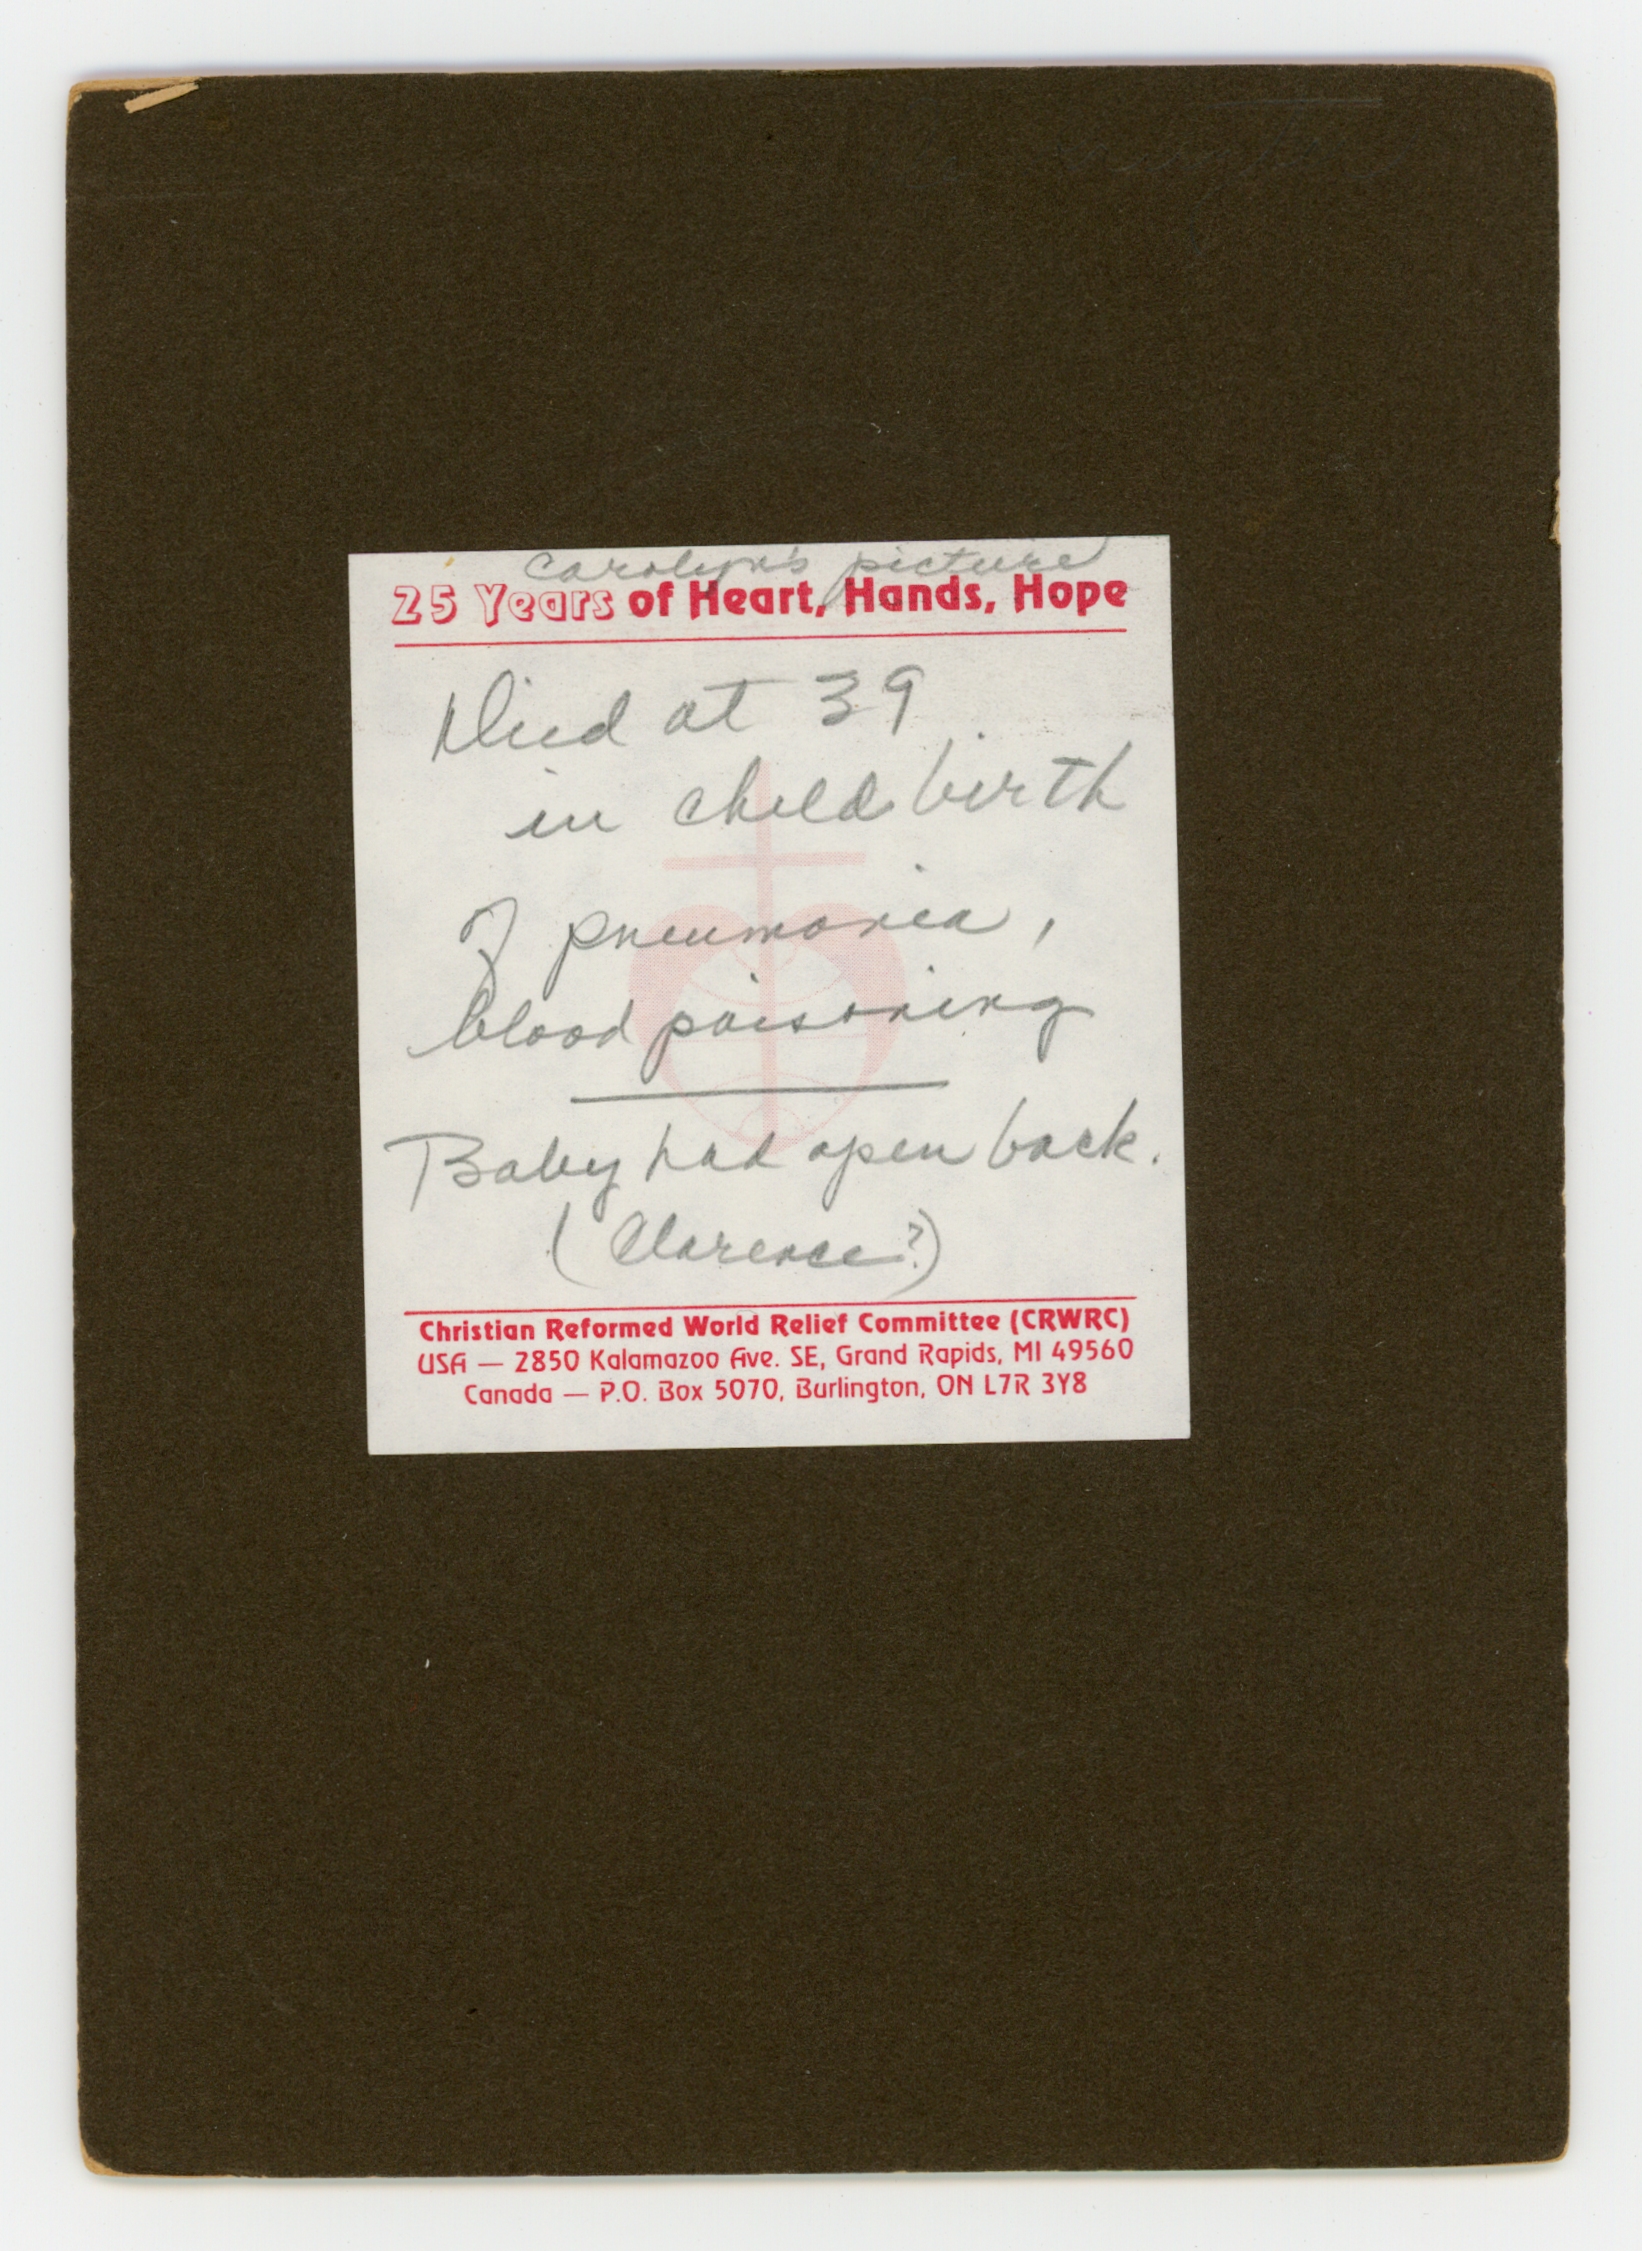 Carolyn's picture
25 Years of Heart, Hands, Hope
Died at 39
in child birth
of pneumonia,
blood poisoning
Baby had open back.
(Clarence?)
Christian Reformed World Relief Committee (CRWRC)
USA — 2850 Kalamazoo Ave. SE, Grand Rapids, MI 49560
Canada — P.O. Box 5070, Burlington, ON L7R 3Y8